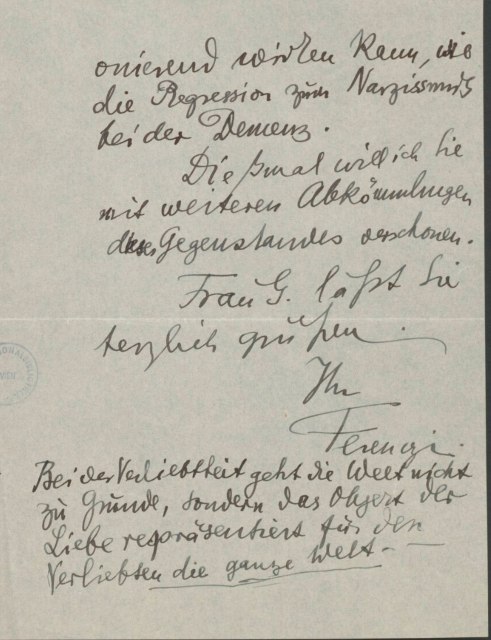 onierend wirken kann, wie
die Regression zum Narzissmus
bei der Demenz.
Diesmal will ich Sie
mit weiteren Abkömmlingen
dieses Gegenstandes verschonen.
Frau G. läßt Sie
herzlich grüßen.
Ihr
Ferenczi.
Bei der Verliebtheit geht die Welt nicht
zu Grunde, sondern das Objekt der
Liebe repräsentiert für den
Verliebten die ganze Welt. —